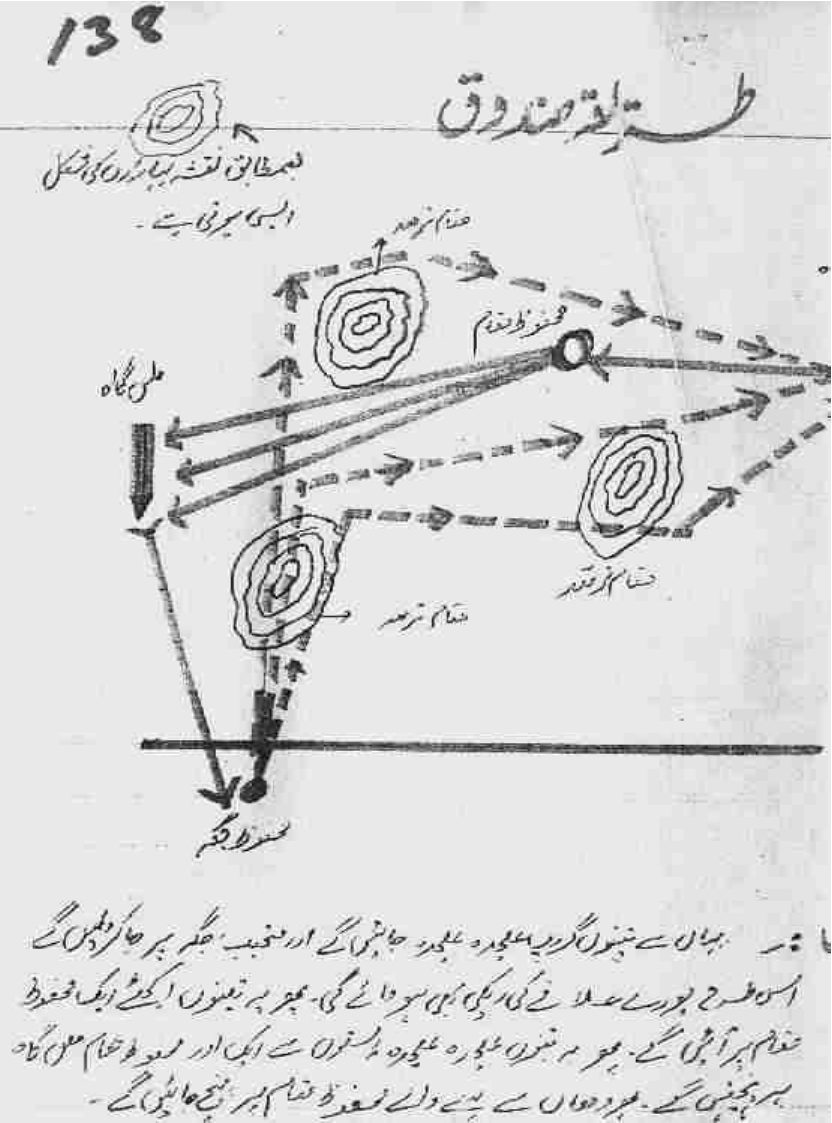 138
طریقہ صندوق
بمطابق نقشہ پہاڑوں کی شکل
ایسی ہوتی ہے۔
مقام ترصد
محفوظ مقام
ملن گاہ
مقام ترصد
مقام ترصد
محفوظ جگہ
یہاں سے تینوں گروپ علیحدہ علیحدہ جائیں گے اور منتخب جگہ پر جا کر ملیں گے
اس طرح پورے علاقے کی ریکی بھی ہو جائے گی۔ پھر یہ تینوں اکٹھے ایک محفوظ
مقام پر آئیں گے۔ پھر یہ تینوں علیحدہ علیحدہ راستوں سے ایک اور محفوظ مقام ملن گاہ
پر پہنچیں گے۔ پھر وہاں سے پہلے والے محفوظ مقام پر پہنچ جائیں گے۔